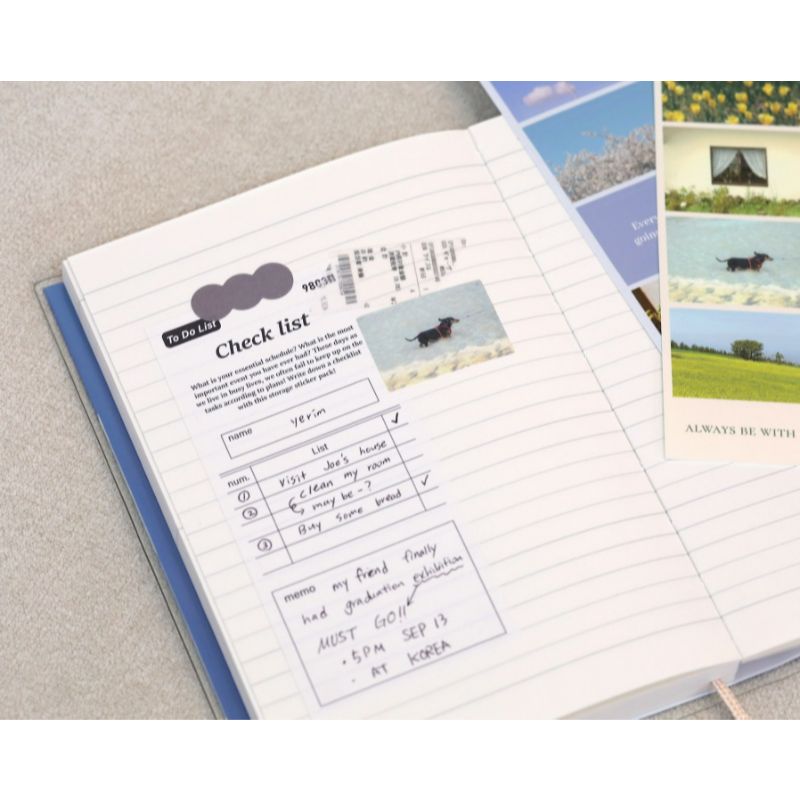 98C3E
To Do List
Check list
What is your essential schedule? What is the most
important event you have ever had? These days as
we live in busy lives, we often fail to keep up on the
tasks according to plans! Write down a checklist
with this storage sticker pack!
name yerim
num. List ✓
① visit Joe's house
② clean my room
may be - ?
③ Buy some bread ✓
memo my friend finally
had graduation exhibition
MUST GO!!
• 5PM SEP 13
• AT KOREA
Every
going
ALWAYS BE WITH